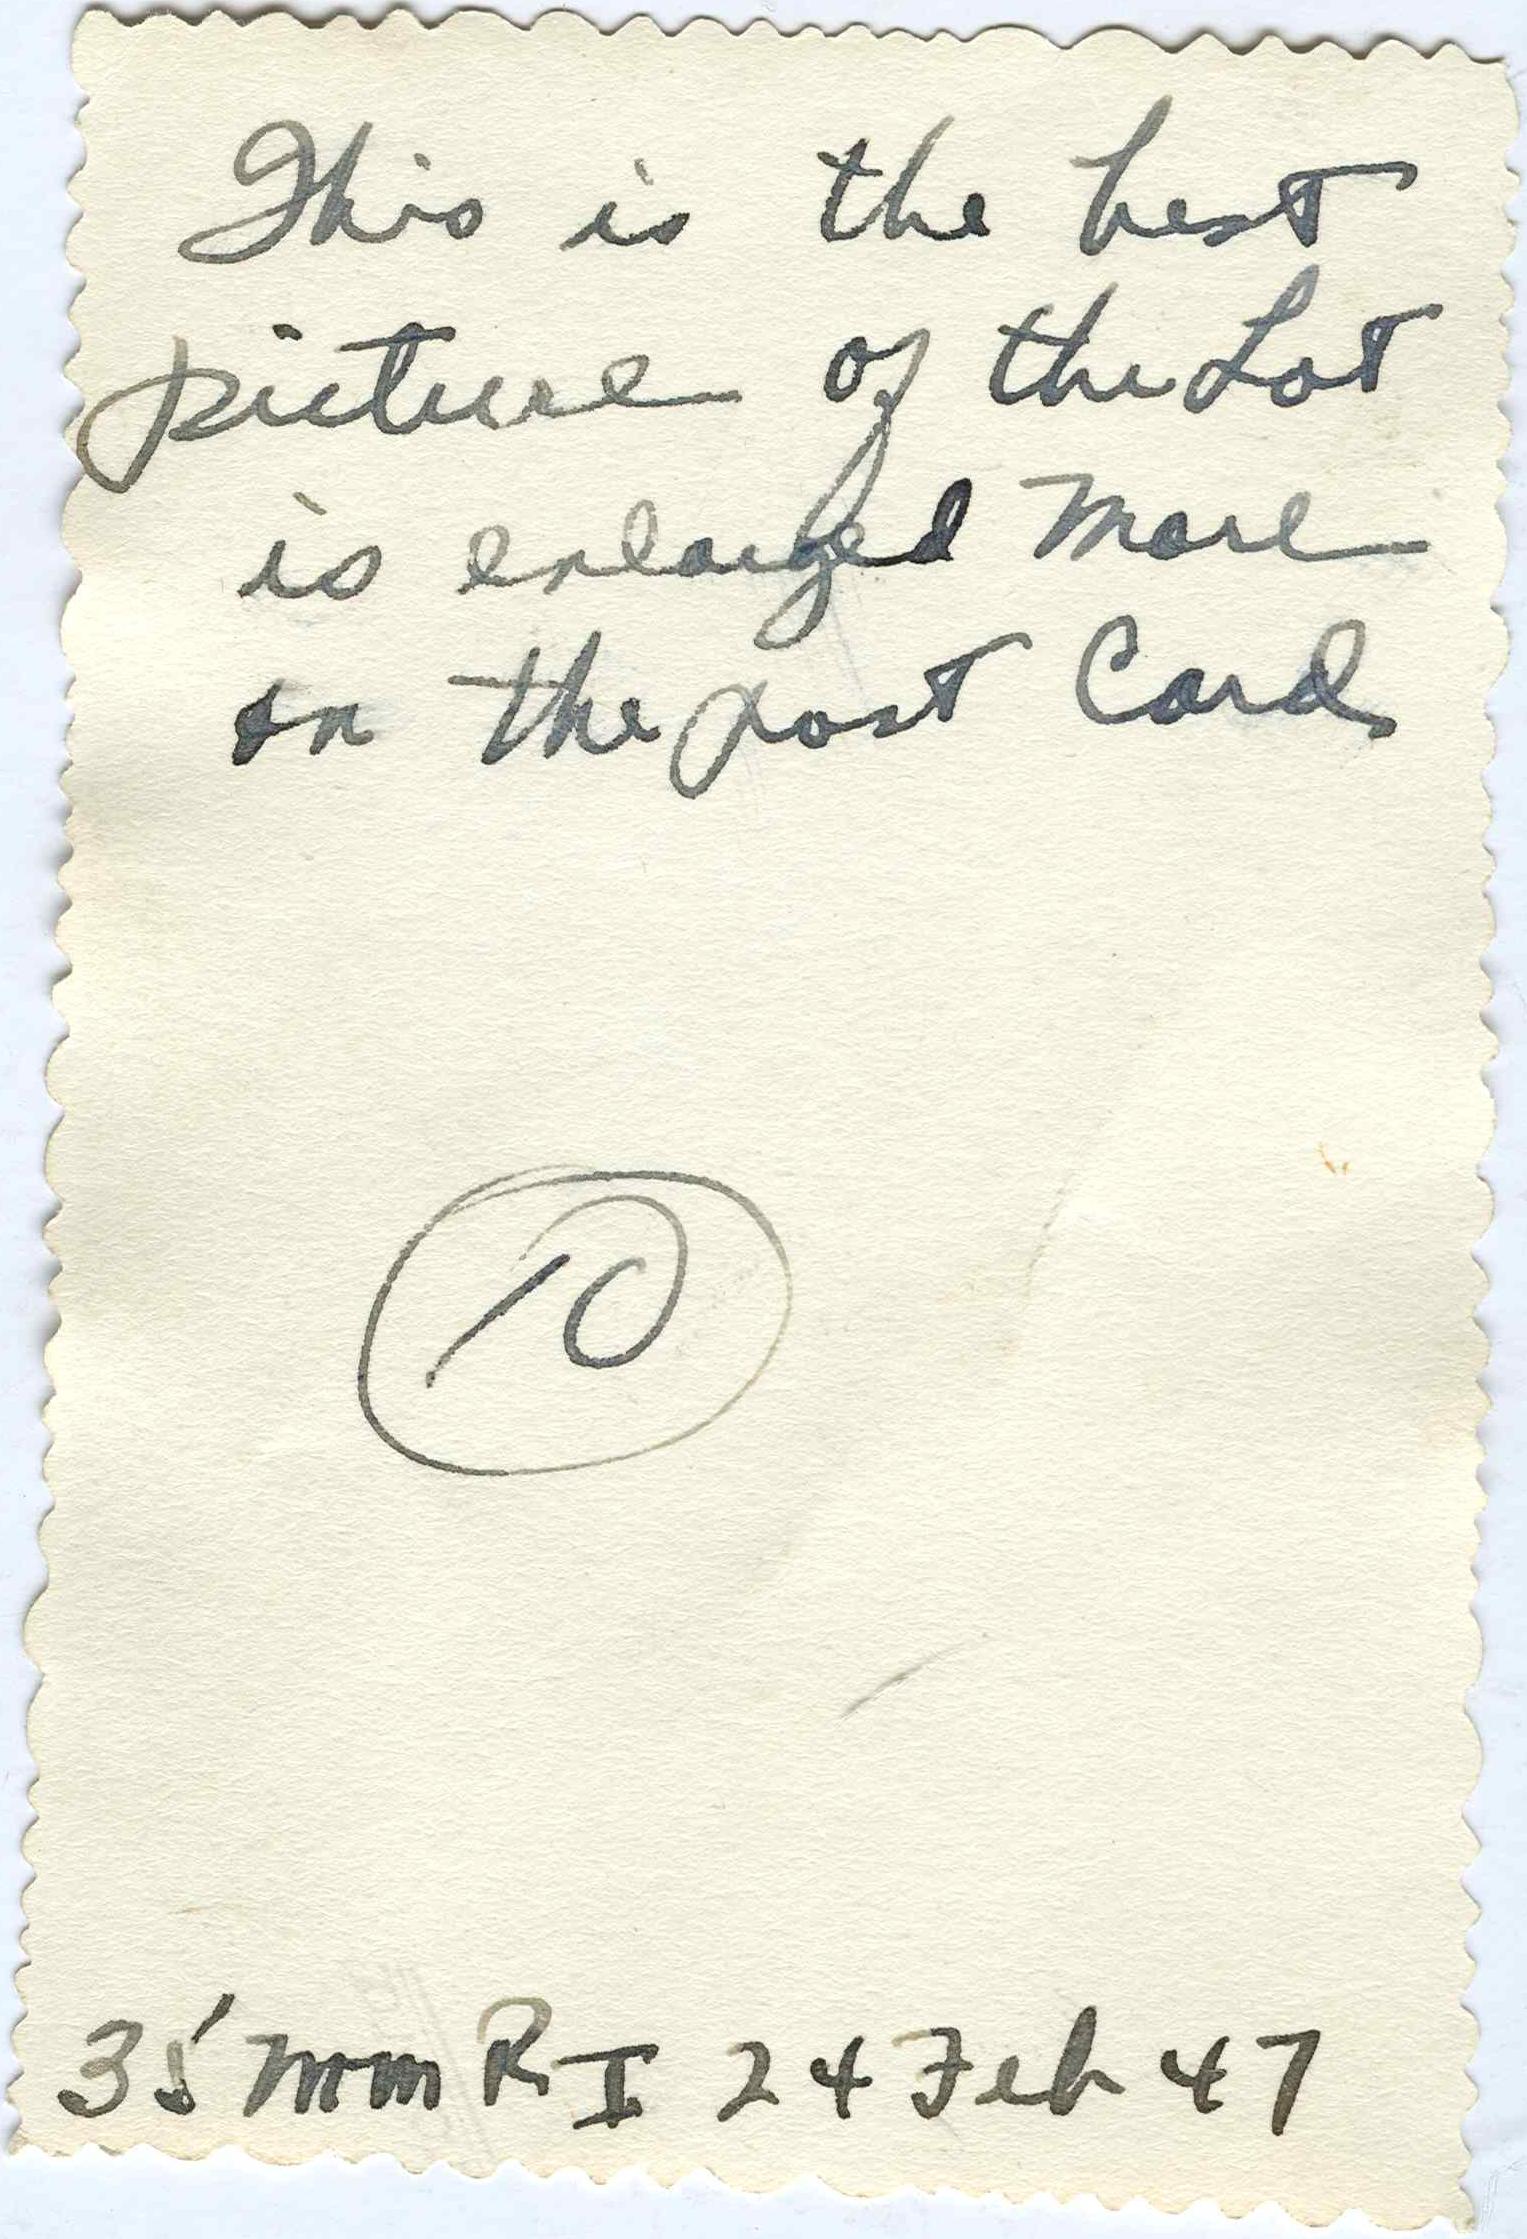 This is the best
picture of the Lot
is enlarged more
on the post Card
10
35 mm R I 24 Feb 47